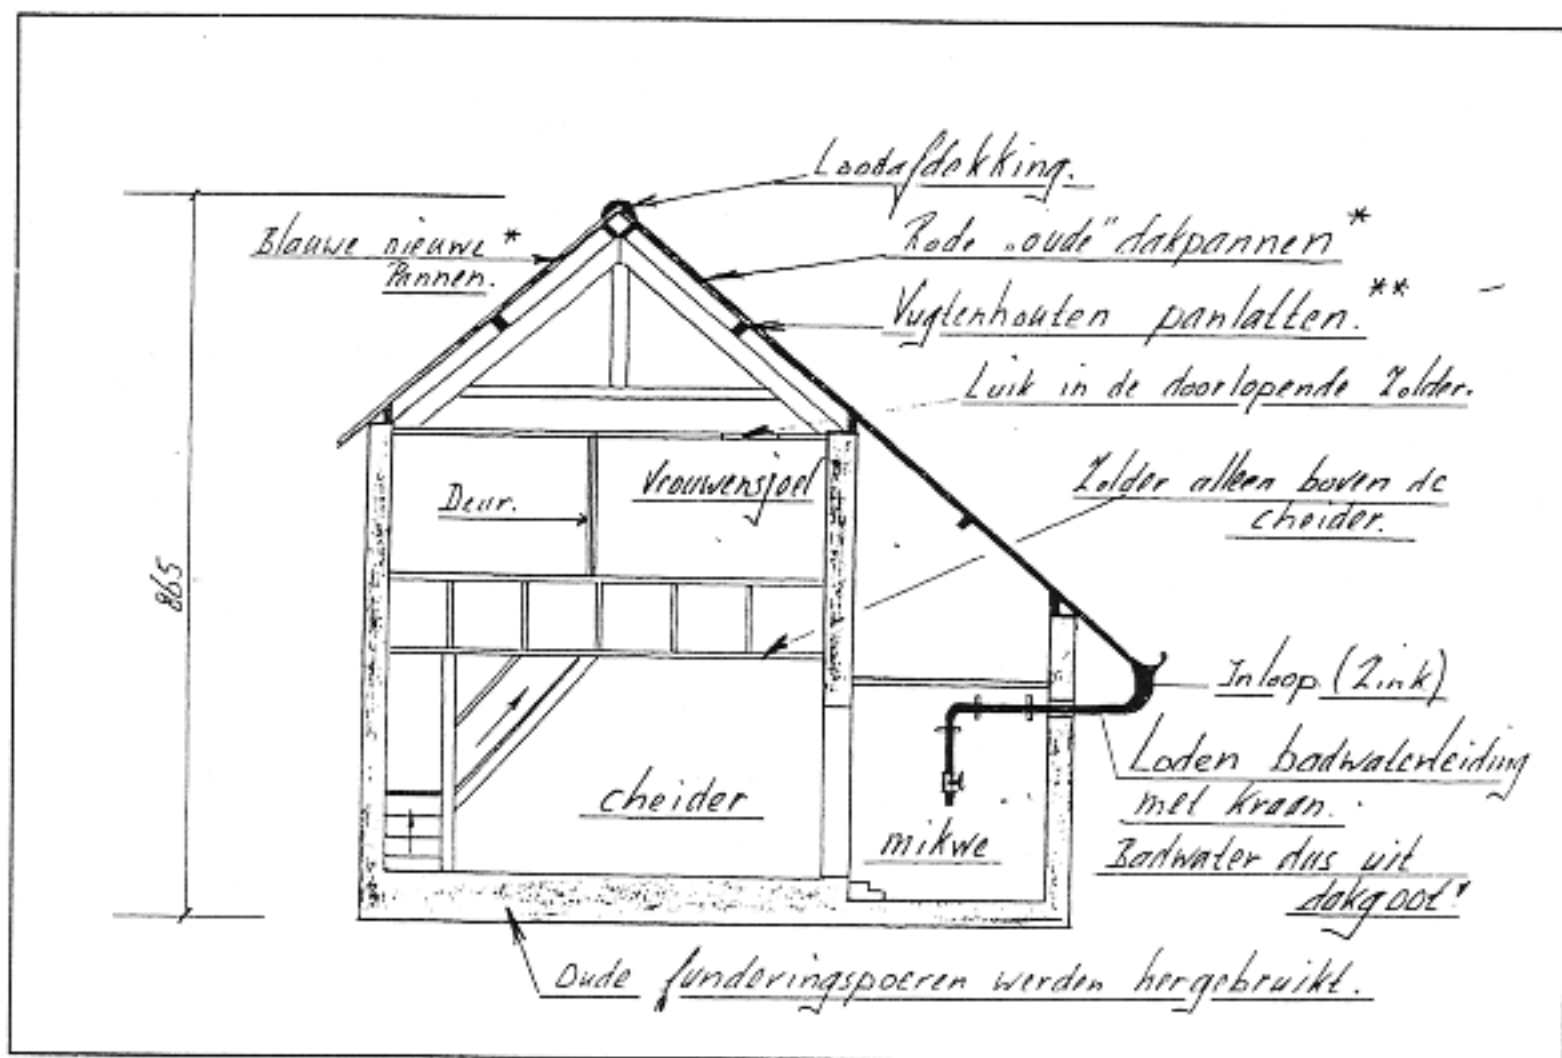 Loodafdekking.
Blauwe nieuwe *
Pannen.
Rode „oude" dakpannen *
Vugtenhouten panlatten. **
Luik in de doorlopende Zolder.
Zolder alleen boven de
cheider.
Deur.
Vrouwensjoel
865
Inloop (Zink)
Loden badwaterleiding
met kraan.
Badwater dus uit
dakgoot!
cheider
mikwe
Oude funderingspoeren werden hergebruikt.